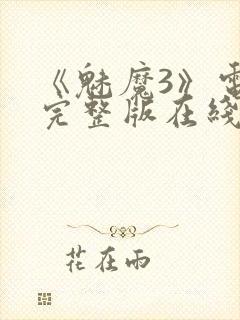 《魅魔3》电
完整版在线
花在雨